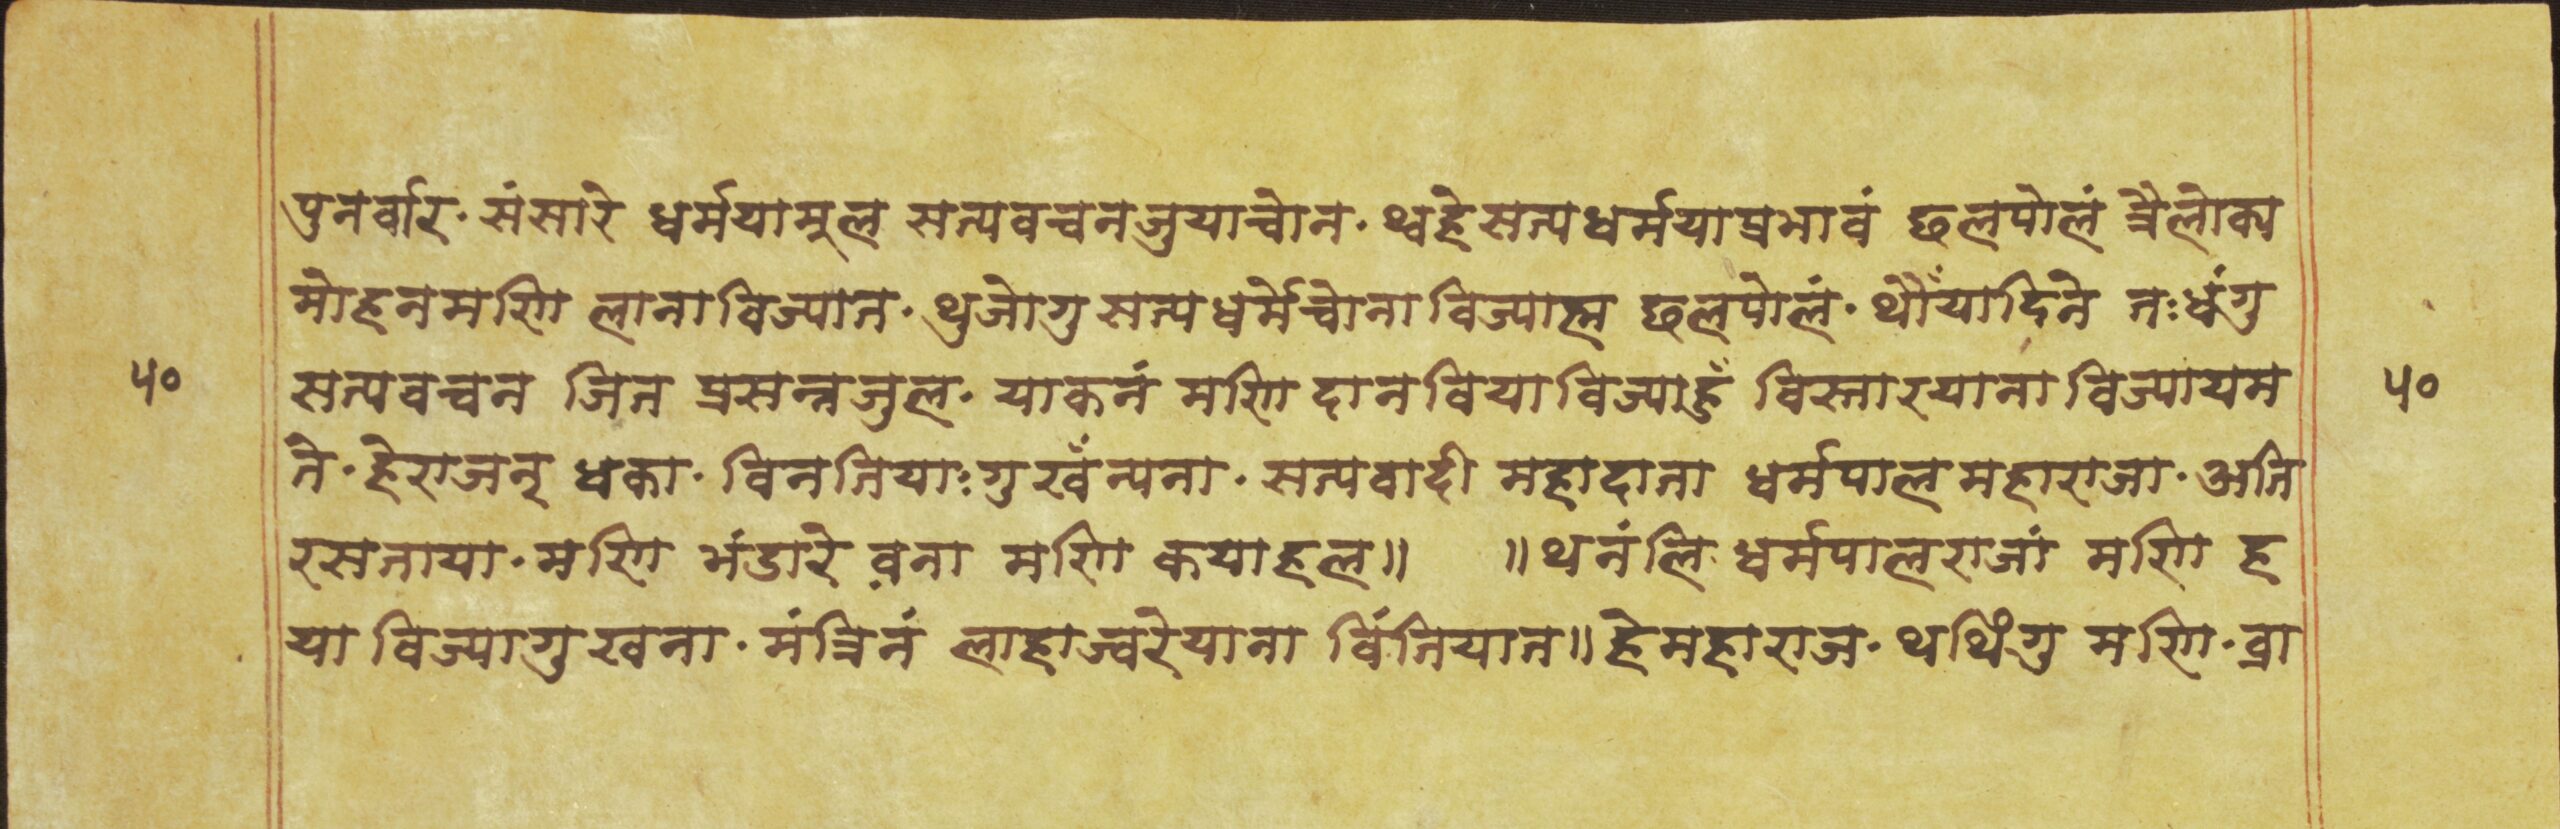 पुनर्वार· संसारे धर्मयामूल सत्यवचनजुयाचोन· थ्वहे सत्यधर्मयाप्रभावं छलपोलं त्रैलोक्य
मोहनमणि लानाविज्यात· थुजोगु सत्यधर्मेचोना विज्याह्म छलपोलं· थौंयादिने तःधंगु
५० सत्यवचन जित प्रसन्नजुल· याकनं मणि दानवियाविज्याहुँ विस्तारयाना विज्यायम ५०
ते· हेराजन् धका· विनतियाःगु खँन्यना· सत्यवादी महादाता धर्मपालमहाराजा· अति
रसताया· मणि भंडारे व़ना मणि कयाहल॥ ॥थनंलि धर्मपालराजां मणि ह
या विज्यागु खवना· मंत्रिनं लाहाज्वरेयाना विंतियात॥ हेमहाराज· थथिंगु मणि· व्रा